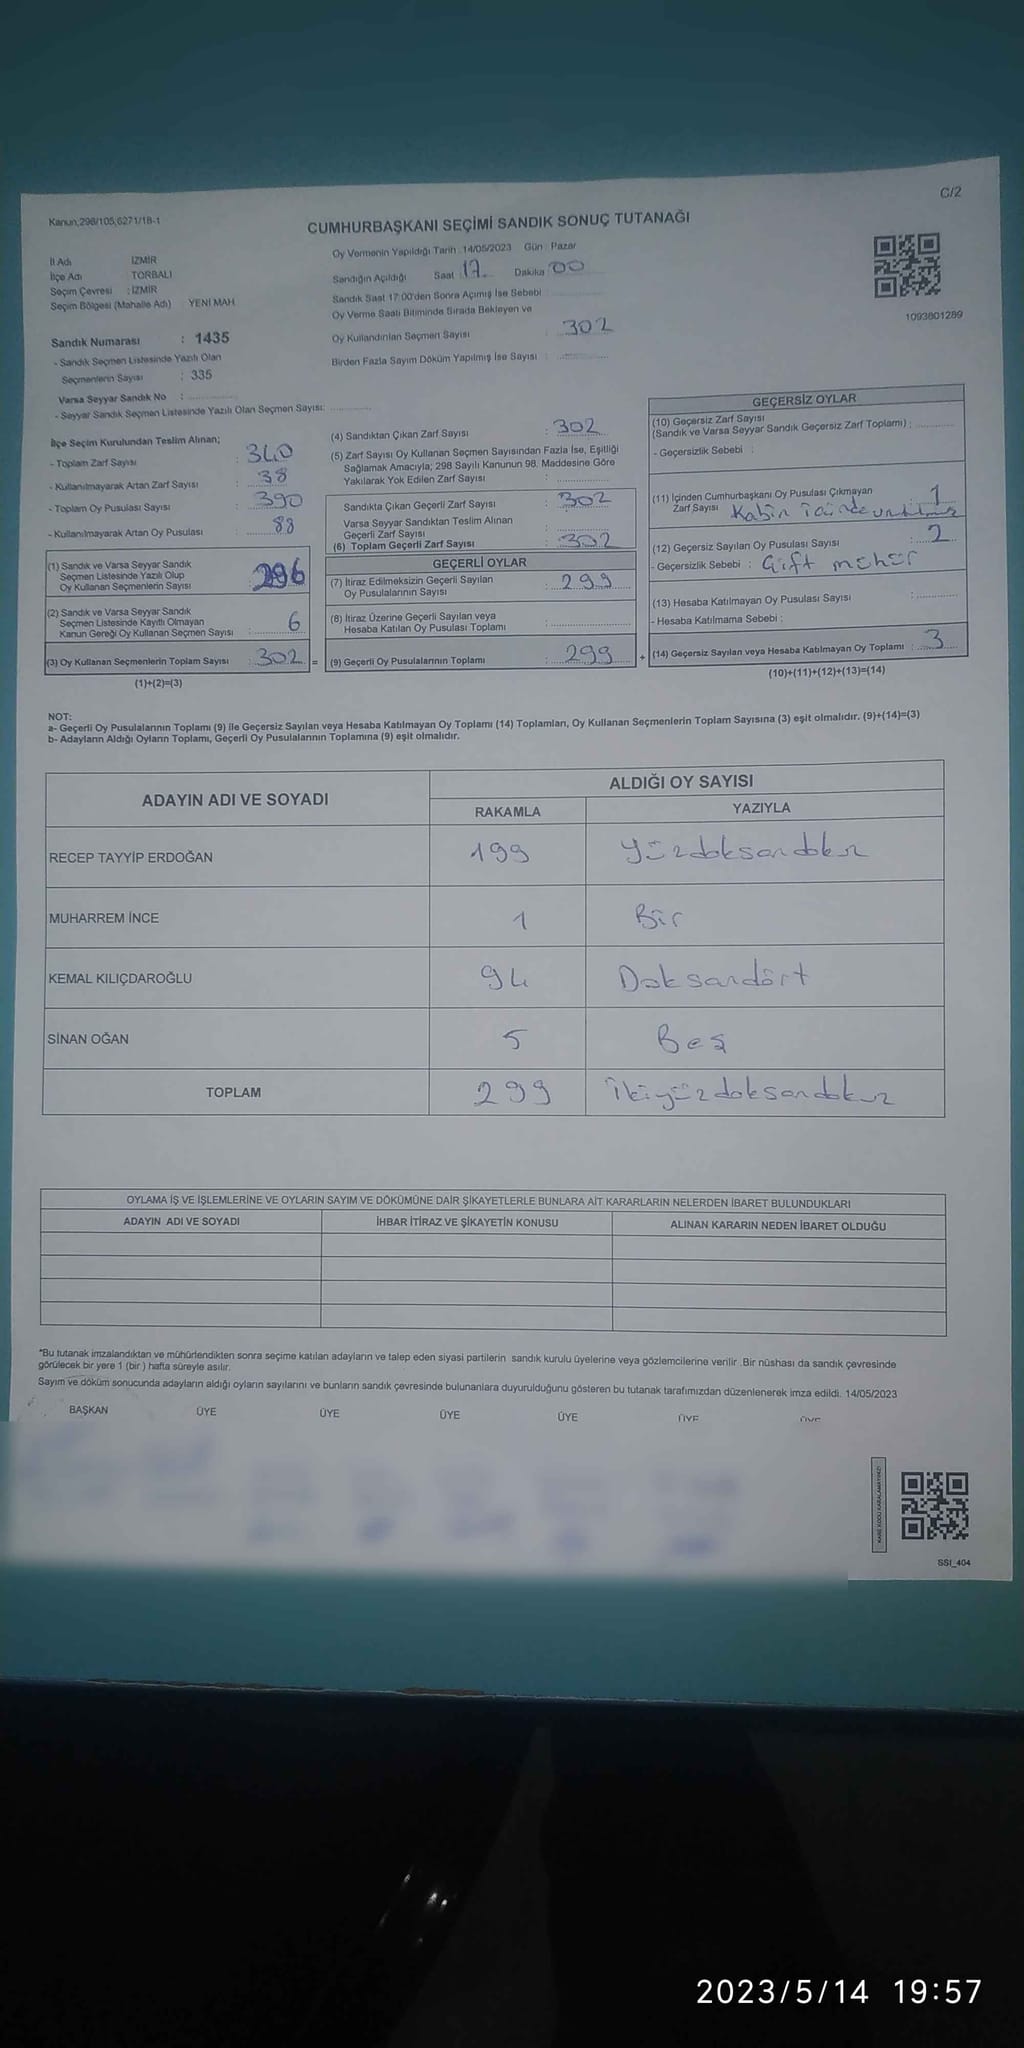 C/2
Kanun;298/105;6271/18-1
CUMHURBAŞKANI SEÇİMİ SANDIK SONUÇ TUTANAĞI
İl Adı İZMİR
İlçe Adı TORBALI
Seçim Çevresi : İZMİR
Seçim Bölgesi (Mahalle Adı) YENİ MAH.
Sandık Numarası : 1435
- Sandık Seçmen Listesinde Yazılı Olan
Seçmenlerin Sayısı : 335
Varsa Seyyar Sandık No : ..............
- Seyyar Sandık Seçmen Listesinde Yazılı Olan Seçmen Sayısı: ..............
Oy Vermenin Yapıldığı Tarih : 14/05/2023 Gün : Pazar
Sandığın Açıldığı Saat : 17 Dakika : 00
Sandık Saat 17:00'den Sonra Açımış İse Sebebi :
Oy Verme Saati Bitiminde Sırada Bekleyen ve
Oy Kullandırılan Seçmen Sayısı : 302
Birden Fazla Sayım Döküm Yapılmış İse Sayısı : ..............
1093801289
İlçe Seçim Kurulundan Teslim Alınan;
- Toplam Zarf Sayısı : 340
- Kullanılmayarak Artan Zarf Sayısı : 38
- Toplam Oy Pusulası Sayısı : 390
- Kullanılmayarak Artan Oy Pusulası : 88
(1) Sandık ve Varsa Seyyar Sandık
Seçmen Listesinde Yazılı Olup
Oy Kullanan Seçmenlerin Sayısı : 296
(2) Sandık ve Varsa Seyyar Sandık
Seçmen Listesinde Kayıtlı Olmayan
Kanun Gereği Oy Kullanan Seçmen Sayısı : 6
(3) Oy Kullanan Seçmenlerin Toplam Sayısı : 302 =
(1)+(2)=(3)
(4) Sandıktan Çıkan Zarf Sayısı : 302
(5) Zarf Sayısı Oy Kullanan Seçmen Sayısından Fazla İse, Eşitliği
Sağlamak Amacıyla; 298 Sayılı Kanunun 98. Maddesine Göre
Yakılarak Yok Edilen Zarf Sayısı : ..............
Sandıkta Çıkan Geçerli Zarf Sayısı : 302
Varsa Seyyar Sandıktan Teslim Alınan
Geçerli Zarf Sayısı : ..............
(6) Toplam Geçerli Zarf Sayısı : 302
GEÇERLİ OYLAR
(7) İtiraz Edilmeksizin Geçerli Sayılan
Oy Pusulalarının Sayısı : 299
(8) İtiraz Üzerine Geçerli Sayılan veya
Hesaba Katılan Oy Pusulası Toplamı : ..............
(9) Geçerli Oy Pusulalarının Toplamı : 299 +
GEÇERSİZ OYLAR
(10) Geçersiz Zarf Sayısı
(Sandık ve Varsa Seyyar Sandık Geçersiz Zarf Toplamı) : ..............
- Geçersizlik Sebebi :
(11) İçinden Cumhurbaşkanı Oy Pusulası Çıkmayan
Zarf Sayısı : 1
Kabin içinde
(12) Geçersiz Sayılan Oy Pusulası Sayısı : 2
- Geçersizlik Sebebi : Çift mühür
(13) Hesaba Katılmayan Oy Pusulası Sayısı : ..............
- Hesaba Katılmama Sebebi :
(14) Geçersiz Sayılan veya Hesaba Katılmayan Oy Toplamı : 3
(10)+(11)+(12)+(13)=(14)
NOT:
a- Geçerli Oy Pusulalarının Toplamı (9) ile Geçersiz Sayılan veya Hesaba Katılmayan Oy Toplamı (14) Toplamları, Oy Kullanan Seçmenlerin Toplam Sayısına (3) eşit olmalıdır. (9)+(14)=(3)
b- Adayların Aldığı Oyların Toplamı, Geçerli Oy Pusulalarının Toplamına (9) eşit olmalıdır.
ADAYIN ADI VE SOYADI ALDIĞI OY SAYISI
RAKAMLA YAZIYLA
RECEP TAYYİP ERDOĞAN 199 Yüzdoksandokuz
MUHARREM İNCE 1 Bir
KEMAL KILIÇDAROĞLU 94 Doksandört
SİNAN OĞAN 5 Beş
TOPLAM 299 İkiyüzdoksandokuz
OYLAMA İŞ VE İŞLEMLERİNE VE OYLARIN SAYIM VE DÖKÜMÜNE DAİR ŞİKAYETLERLE BUNLARA AİT KARARLARIN NELERDEN İBARET BULUNDUKLARI
ADAYIN ADI VE SOYADI İHBAR İTİRAZ VE ŞİKAYETİN KONUSU ALINAN KARARIN NEDEN İBARET OLDUĞU
*Bu tutanak imzalandıktan ve mühürlendikten sonra seçime katılan adayların ve talep eden siyasi partilerin sandık kurulu üyelerine veya gözlemcilerine verilir. Bir nüshası da sandık çevresinde
görülecek bir yere 1 (bir ) hafta süreyle asılır.
Sayım ve döküm sonucunda adayların aldığı oyların sayılarını ve bunların sandık çevresinde bulunanlara duyurulduğunu gösteren bu tutanak tarafımızdan düzenlenerek imza edildi. 14/05/2023
BAŞKAN ÜYE ÜYE ÜYE ÜYE ÜYE ÜYE
KARE KODU KARALAMAYINIZ!
SSI_404
2023/5/14 19:57